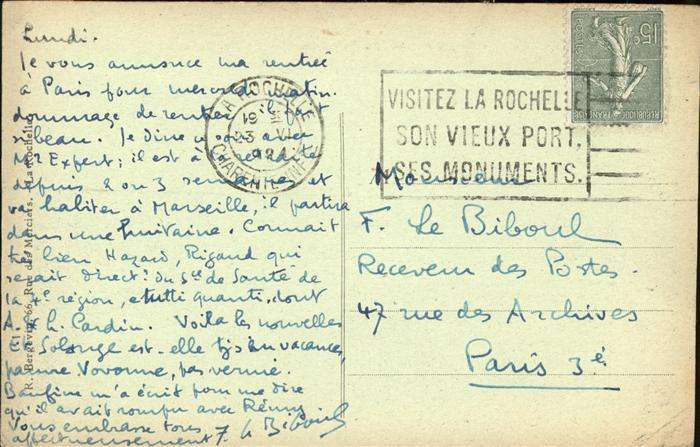 Lundi.
Je vous annonce ma rentrée
à Paris pour mercredi matin.
dommage de rentrer il fait
si beau. Je dîne soir avec
Mr Expert; il est à
depuis 2 ou 3 semaines et
va habiter à Marseille, il partira
dans une huitaine. Connait
très bien Hazard, Rigaud qui
serait direct. du Sce de Santé de
la 4e région, e tutti quanti, dont
A. & L. Cardin. Voila les nouvelles
Et Solange est-elle tjs en vacances,
pauvre Vovonne, pas vernie.
m'a écrit pour me dire
qu'il avait rompu avec Rémy
Vous embrasse tous
affectueusement F. Le Biboul
R. Bergevin, 66, Rue des Merciers, La Rochelle
LA ROCHELLE
19 30
23 VI
1924
CHARENTE-INFRE
VISITEZ LA ROCHELLE
SON VIEUX PORT,
SES MONUMENTS.
15c
POSTES
REPUBLIQUE FRANÇAISE
Monsieur
F. Le Biboul
Receveur des Postes.
47 rue des Archives
Paris 3è